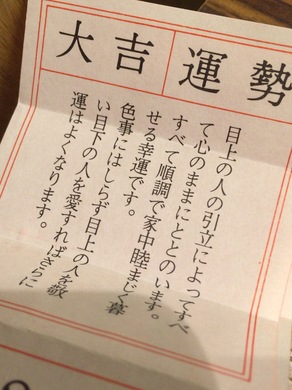 運勢
大吉
目上の人の引立によってすべ
て心のままにととのいます。
すべて順調で家中睦まじく暮
せる幸運です。
色事にはしらず目上の人を敬
い目下の人を愛すればさらに
運はよくなります。